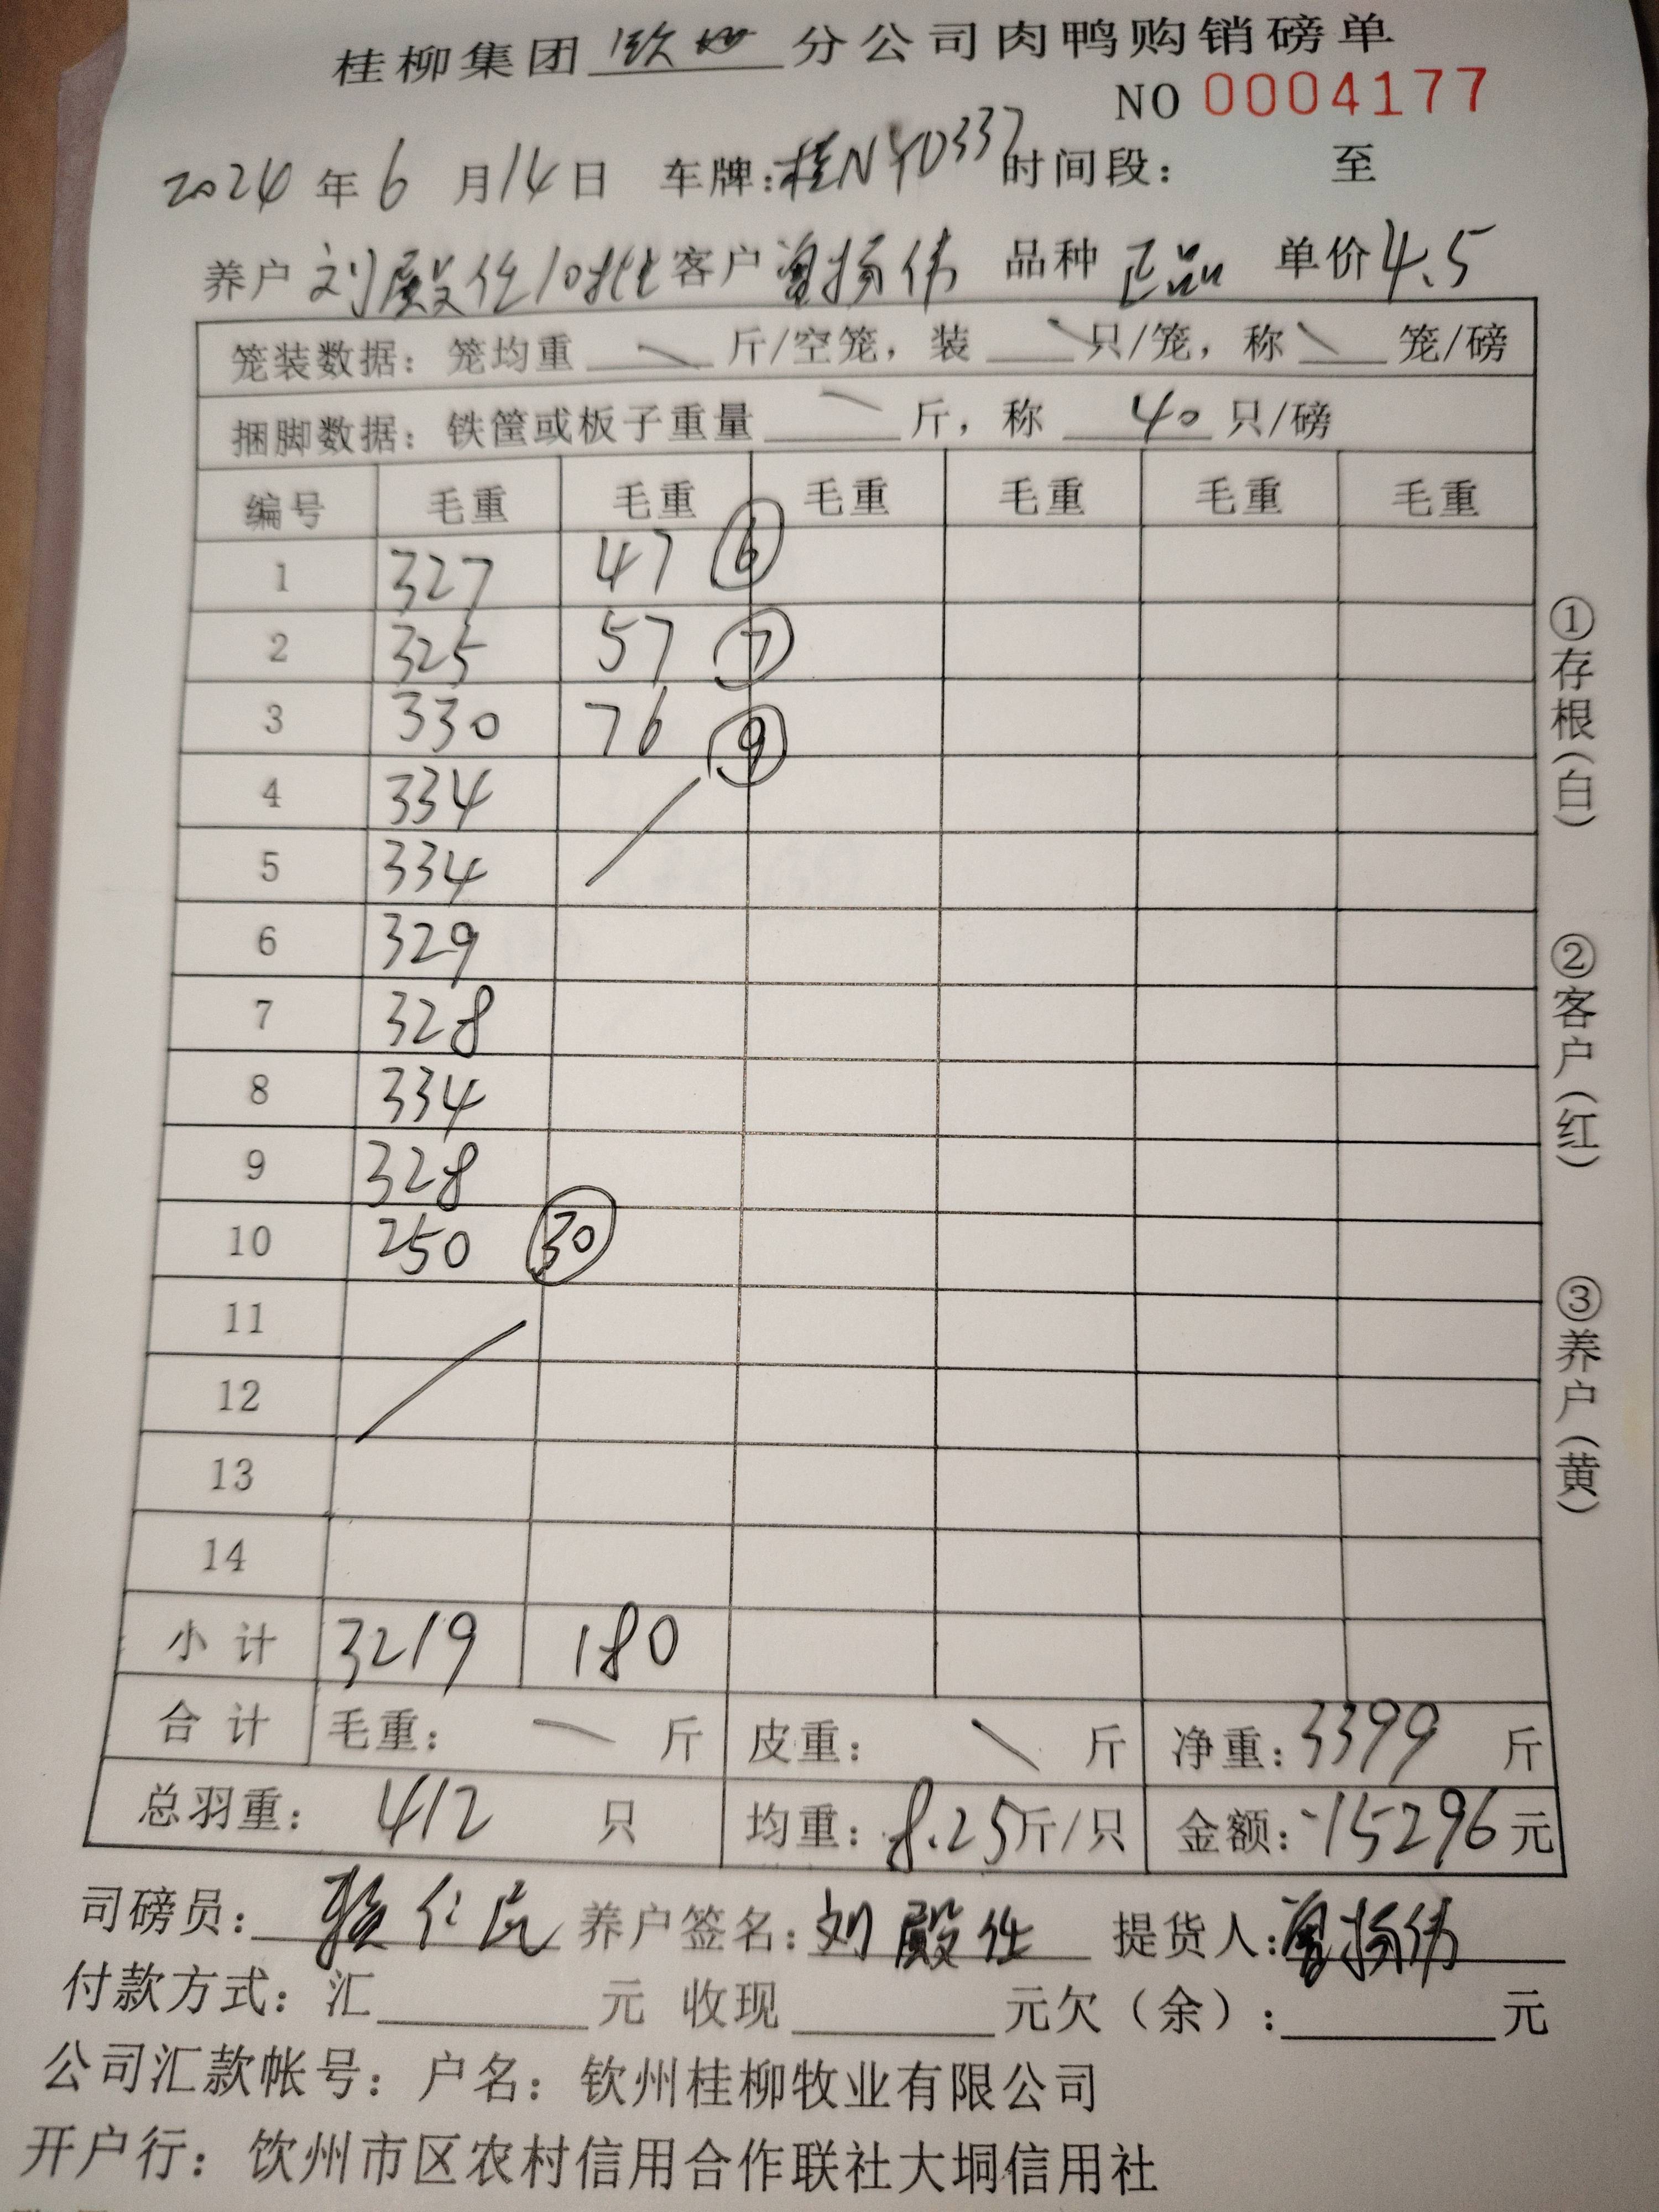 桂柳集团 钦州 分公司肉鸭购销磅单
NO 0004177
2024 年 6 月 14 日 车牌：桂N 0337 时间段： 至
养户 刘殿仕 10批 客户 曾扬伟 品种 正品 单价 4.5
笼装数据：笼均重 \ 斤/空笼，装 \ 只/笼，称 \ 笼/磅
捆脚数据：铁筐或板子重量 \ 斤，称 40 只/磅
编号 毛重 毛重 毛重 毛重 毛重 毛重
1 327 47 ⑥
2 325 57 ⑦
3 330 76 ⑨
4 334
5 334
6 329
7 328
8 334
9 328
10 250 ㉚
11
12
13
14
小计 3219 180
合计 毛重： \ 斤 皮重： \ 斤 净重：3399 斤
总羽重： 412 只 均重：8.25斤/只 金额：-15296元
司磅员： 养户签名：刘殿仕 提货人：曾扬伟
付款方式：汇 元 收现 元欠（余）： 元
公司汇款帐号：户名：钦州桂柳牧业有限公司
开户行：饮州市区农村信用合作联社大垌信用社
①存根（白）
②客户（红）
③养户（黄）